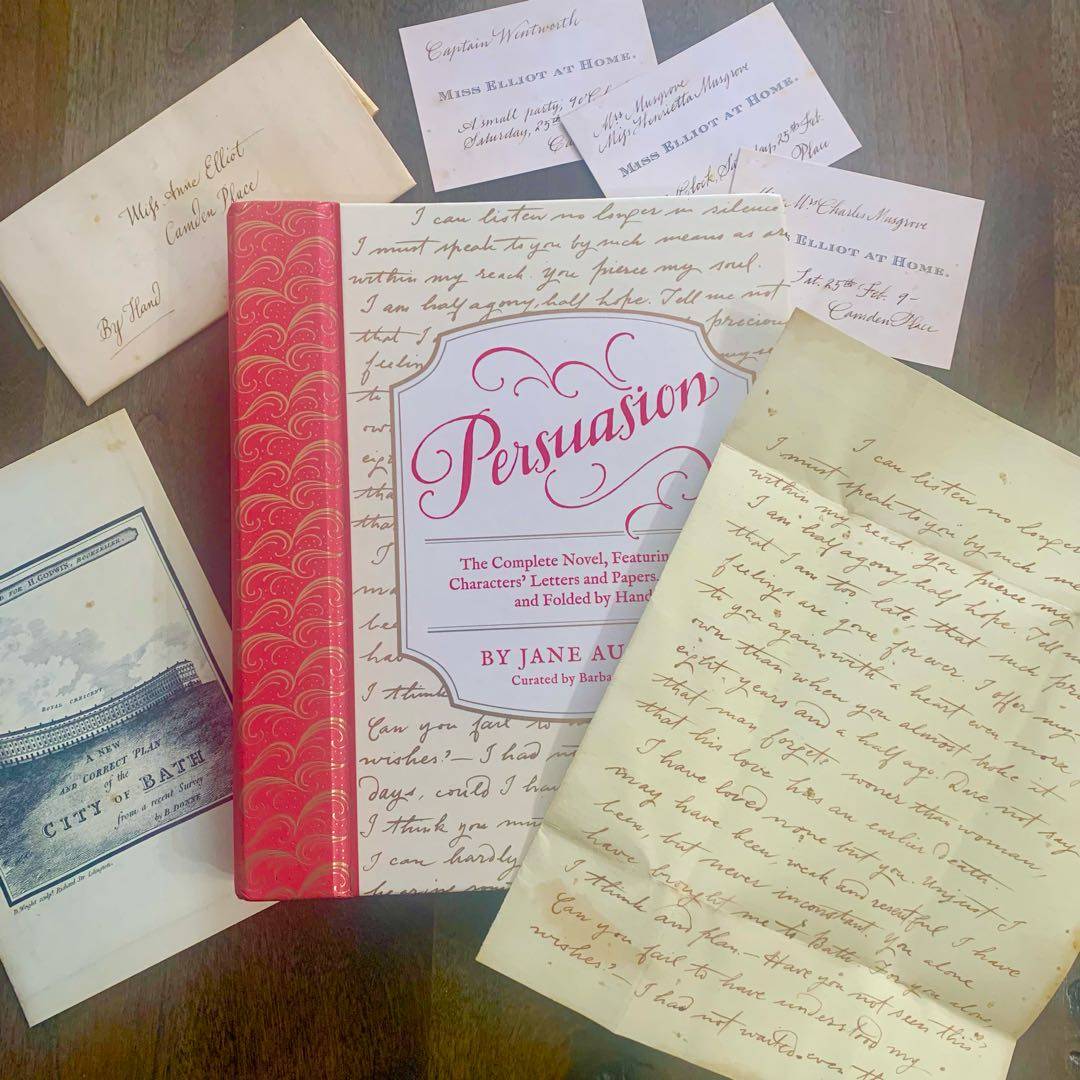 Miss Anne Elliot
Camden Place
By Hand
Captain Wentworth
MISS ELLIOT AT HOME.
A small party, 9 o'Cl
Saturday, 25th
Ca
Mrs Musgrove
Miss Henrietta Musgrove
MISS ELLIOT AT HOME.
o'clock, Saturday, 25th Feb.
Place
Mrs Charles Musgrove
ELLIOT AT HOME.
Sat. 25th Feb. 9-
Camden Place
I can listen no longer in silence
I must speak to you by such means as are
within my reach. you pierce my soul.
I am half agony, half hope. Tell me not
that I
precious
feelin
to
own
eig
tha
that
I
ma
bee
hav
I think
Can you fail to
wishes?— I had n
days, could I hav
I think you mu
I can hardly
Persuasion
The Complete Novel, Featurin
Characters' Letters and Papers
and Folded by Hand
BY JANE AU
Curated by Barba
D FOR H. GODWIN, BOOKSELLER.
ROYAL CRESCENT
A NEW
AND CORRECT PLAN
of the
CITY OF BATH
from a recent Survey
by B. DONNE
Wright sculpt
I can listen no longer
I must speak to you by such me
within my reach. you pierce my
I am half agony, half hope. Tell m
that I am too late, that such pre
feelings are gone forever. I offer my
to you again with a heart even more y
own than when you almost broke it
eight years and a half ago. Dare not say
that man forgets sooner than woman,
that his love has an earlier death.
I have loved none but you. Unjust I
may have been, weak and resentful I have
been, but never inconstant. You alone
have brought me to Bath. For you alone,
I think and plan.— Have you not seen this?
Can you fail to have understood my
wishes?— I had not waited even th